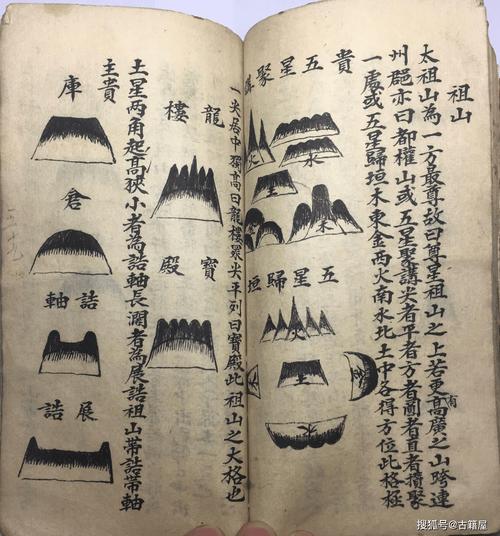 祖山
太祖山為一方最尊故曰尊星祖山之上若更有高廣之山跨連
州郡亦曰都權山或五星聚講尖者平者方者圓者直者攢聚
一處或五星歸垣木東金西火南水北土中各得方位此格極
貴五星聚講
火
水
土
木
五星歸垣
火
土
水
一尖居中獨高曰龍樓眾尖平列曰寶殿此祖山之大格也
龍樓
寶殿
土星两角起高狹小者為誥軸長濶者為展誥祖山帶誥帶軸
主貴
庫
倉
誥軸
展誥
搜狐号@古籍屋